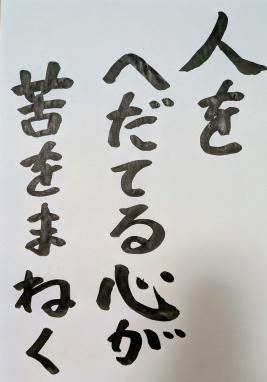 人を
へだてる心が
苦をまねく